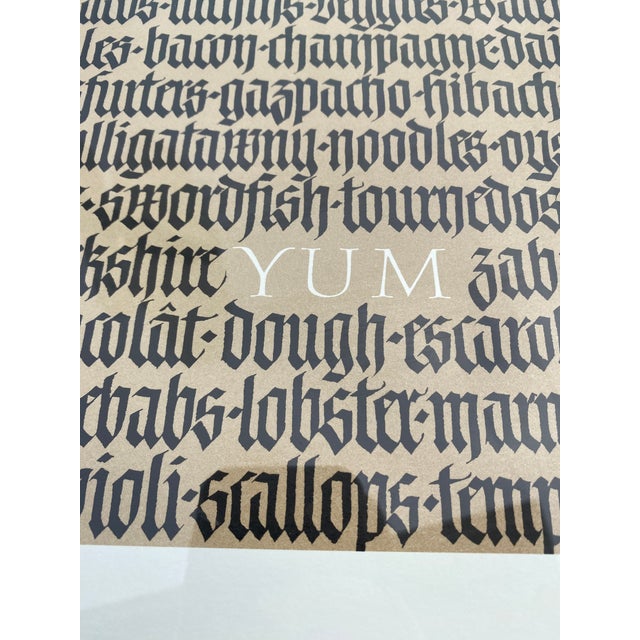 veggies
les·bacon·champagne·dai
furters·gazpacho·hibach
lligatawny·noodles·oys
swordfish·tournedos
kshire YUM zab
colât·dough·escaro
ebabs·lobster·marm
violi·scallops·temp